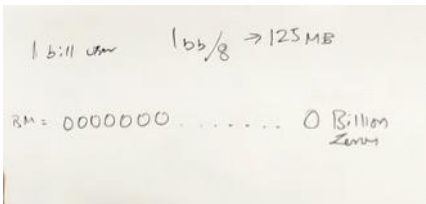 1 bill user 1bb/8 → 125 MB
BM = 0000000 . . . . . . . 0 Billion
Zeros